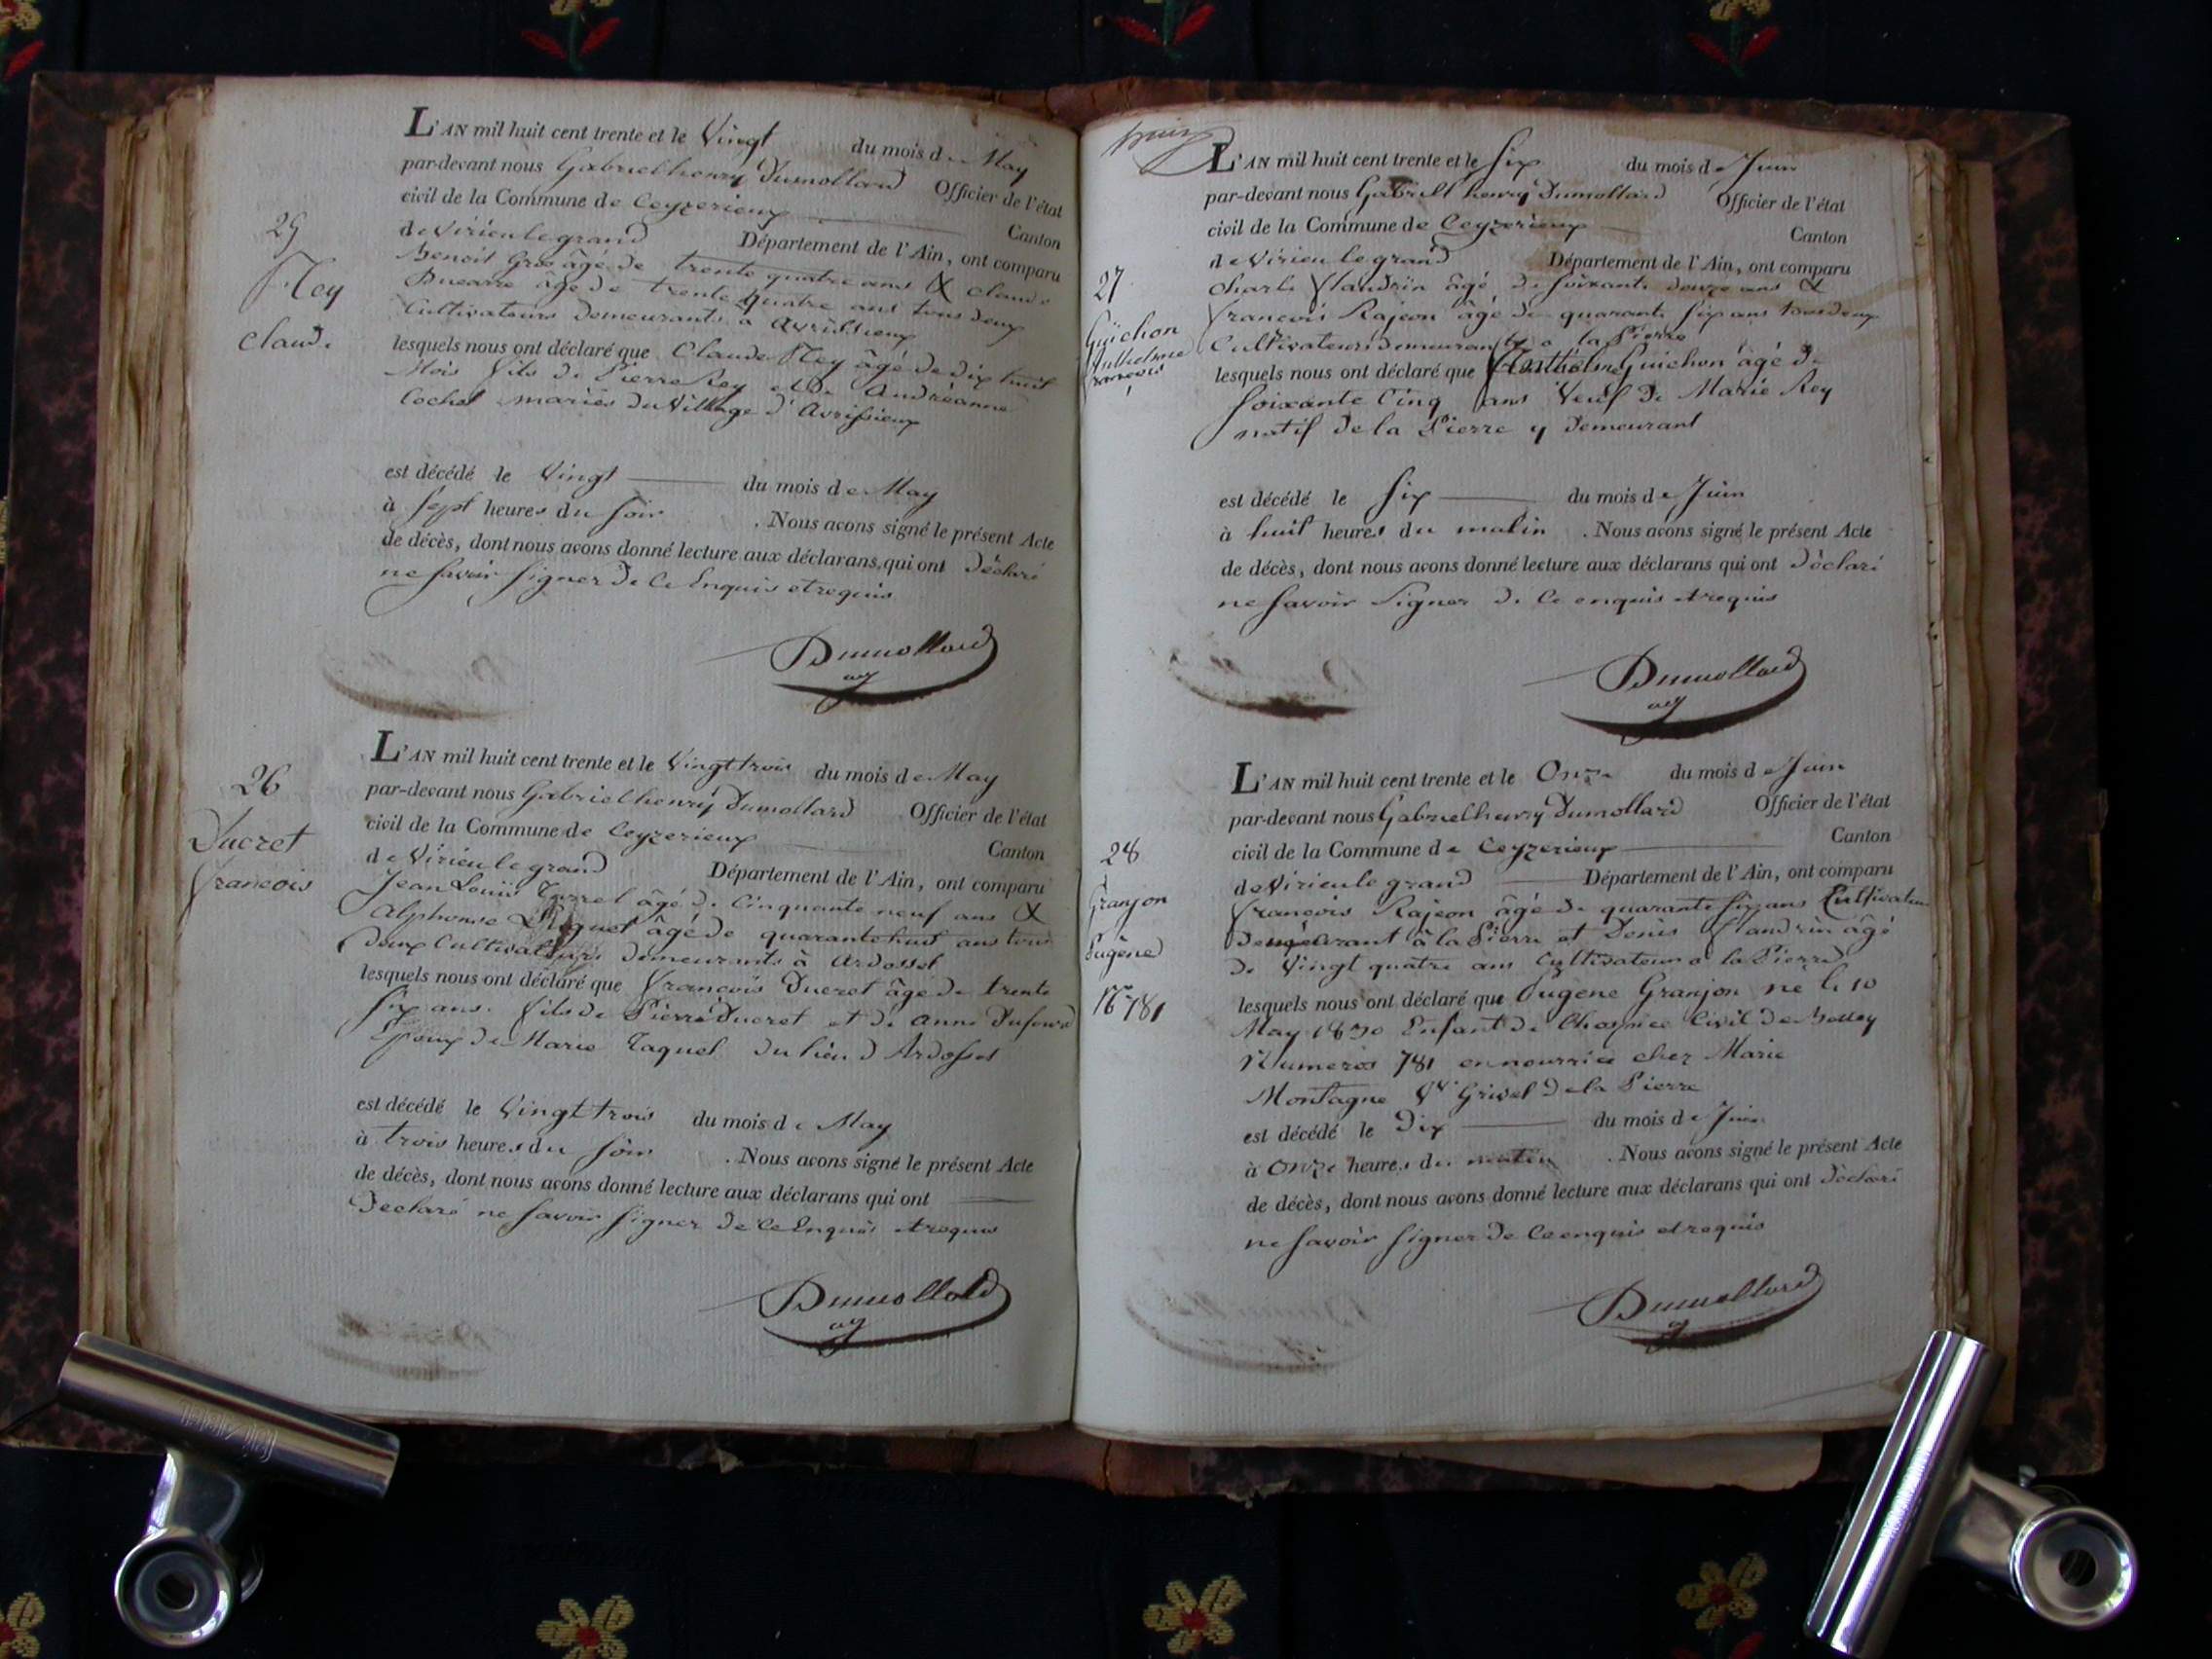 L'AN mil huit cent trente et le Vingt du mois de May
par-devant nous Gabriel henry Dumollard Officier de l'état
civil de la Commune de Ceyzerieux Canton
de Virieu le grand Département de l'Ain, ont comparu
25
Rey
Claude
Benoit Gros âgé de trente quatre ans & Claude
âgé de trente quatre ans tous deux
Cultivateurs Demeurants a Avrissieux
lesquels nous ont déclaré que Claude Rey âgé de dix huit
Mois fils de Pierre Rey et de Andréanne
Cochet mariés du Village d'Avrissieux
est décédé le Vingt du mois de May
à Sept heures du Soir . Nous avons signé le présent Acte
de décès, dont nous avons donné lecture aux déclarans, qui ont Déclaré
ne Savoir Signer De Ce Enquis et requis
Dumollard
26
Ducret
francois
L'AN mil huit cent trente et le Vingt trois du mois de May
par-devant nous Gabriel henry Dumollard Officier de l'état
civil de la Commune de Ceyzerieux Canton
de Virieu le grand Département de l'Ain, ont comparu
Jean Louis âgé de Cinquante neuf ans &
alphonse âgé de quarante huit ans tous
Deux Cultivateurs demeurants à Ardosset
lesquels nous ont déclaré que francois Ducret âge de trente
six ans. fils de Pierre Ducret et de anne
Epoux de Marie du lieu d'Ardosset
est décédé le Vingt trois du mois de May
à trois heures du Soir . Nous avons signé le présent Acte
de décès, dont nous avons donné lecture aux déclarans qui ont
Declaré ne Savoir Signer de Ce Enquis et requis
Dumollard
L'AN mil huit cent trente et le Six du mois de Juin
par-devant nous Gabriel henry Dumollard Officier de l'état
civil de la Commune de Ceyzerieux Canton
de Virieu le grand Département de l'Ain, ont comparu
27
Guichon
Anthelme
francois
Charle flandrin âgé de Soixante douze ans &
francois Rajeon âgé de quarante Six ans tous deux
Cultivateurs demeurants a la Pierre
lesquels nous ont déclaré que Anthelme Guichon âgé de
Soixante Cinq ans Veuf de Marie Rey
natif de la Pierre y Demeurant
est décédé le Six du mois de Juin
à huit heures du matin . Nous avons signé le présent Acte
de décès, dont nous avons donné lecture aux déclarans qui ont Déclaré
ne Savoir Signer de Ce enquis et requis
Dumollard
L'AN mil huit cent trente et le Onze du mois de Juin
par-devant nous Gabriel henry Dumollard Officier de l'état
civil de la Commune de Ceyzerieux Canton
de Virieu le grand Département de l'Ain, ont comparu
28
Granjon
Eugène
No 781
francois Rajeon âgé de quarante Six ans Cultivateur
Demeurant à la Pierre et Denis flandrin âgé
de Vingt quatre ans Cultivateur a la Pierre
lesquels nous ont déclaré que Eugene Granjon né le 10
May 1830 Enfant de Civil de Belley
Numeros 781 en nourrice chez Marie
Montagne Ve Grivel De la Pierre
est décédé le Dix du mois de Juin
à Onze heures du matin . Nous avons signé le présent Acte
de décès, dont nous avons donné lecture aux déclarans qui ont Déclaré
ne Savoir Signer De Ce enquis et requis
Dumollard